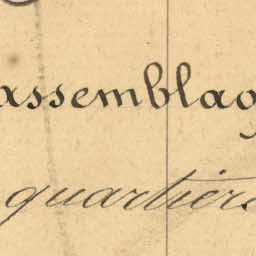 assemblag
quartiers